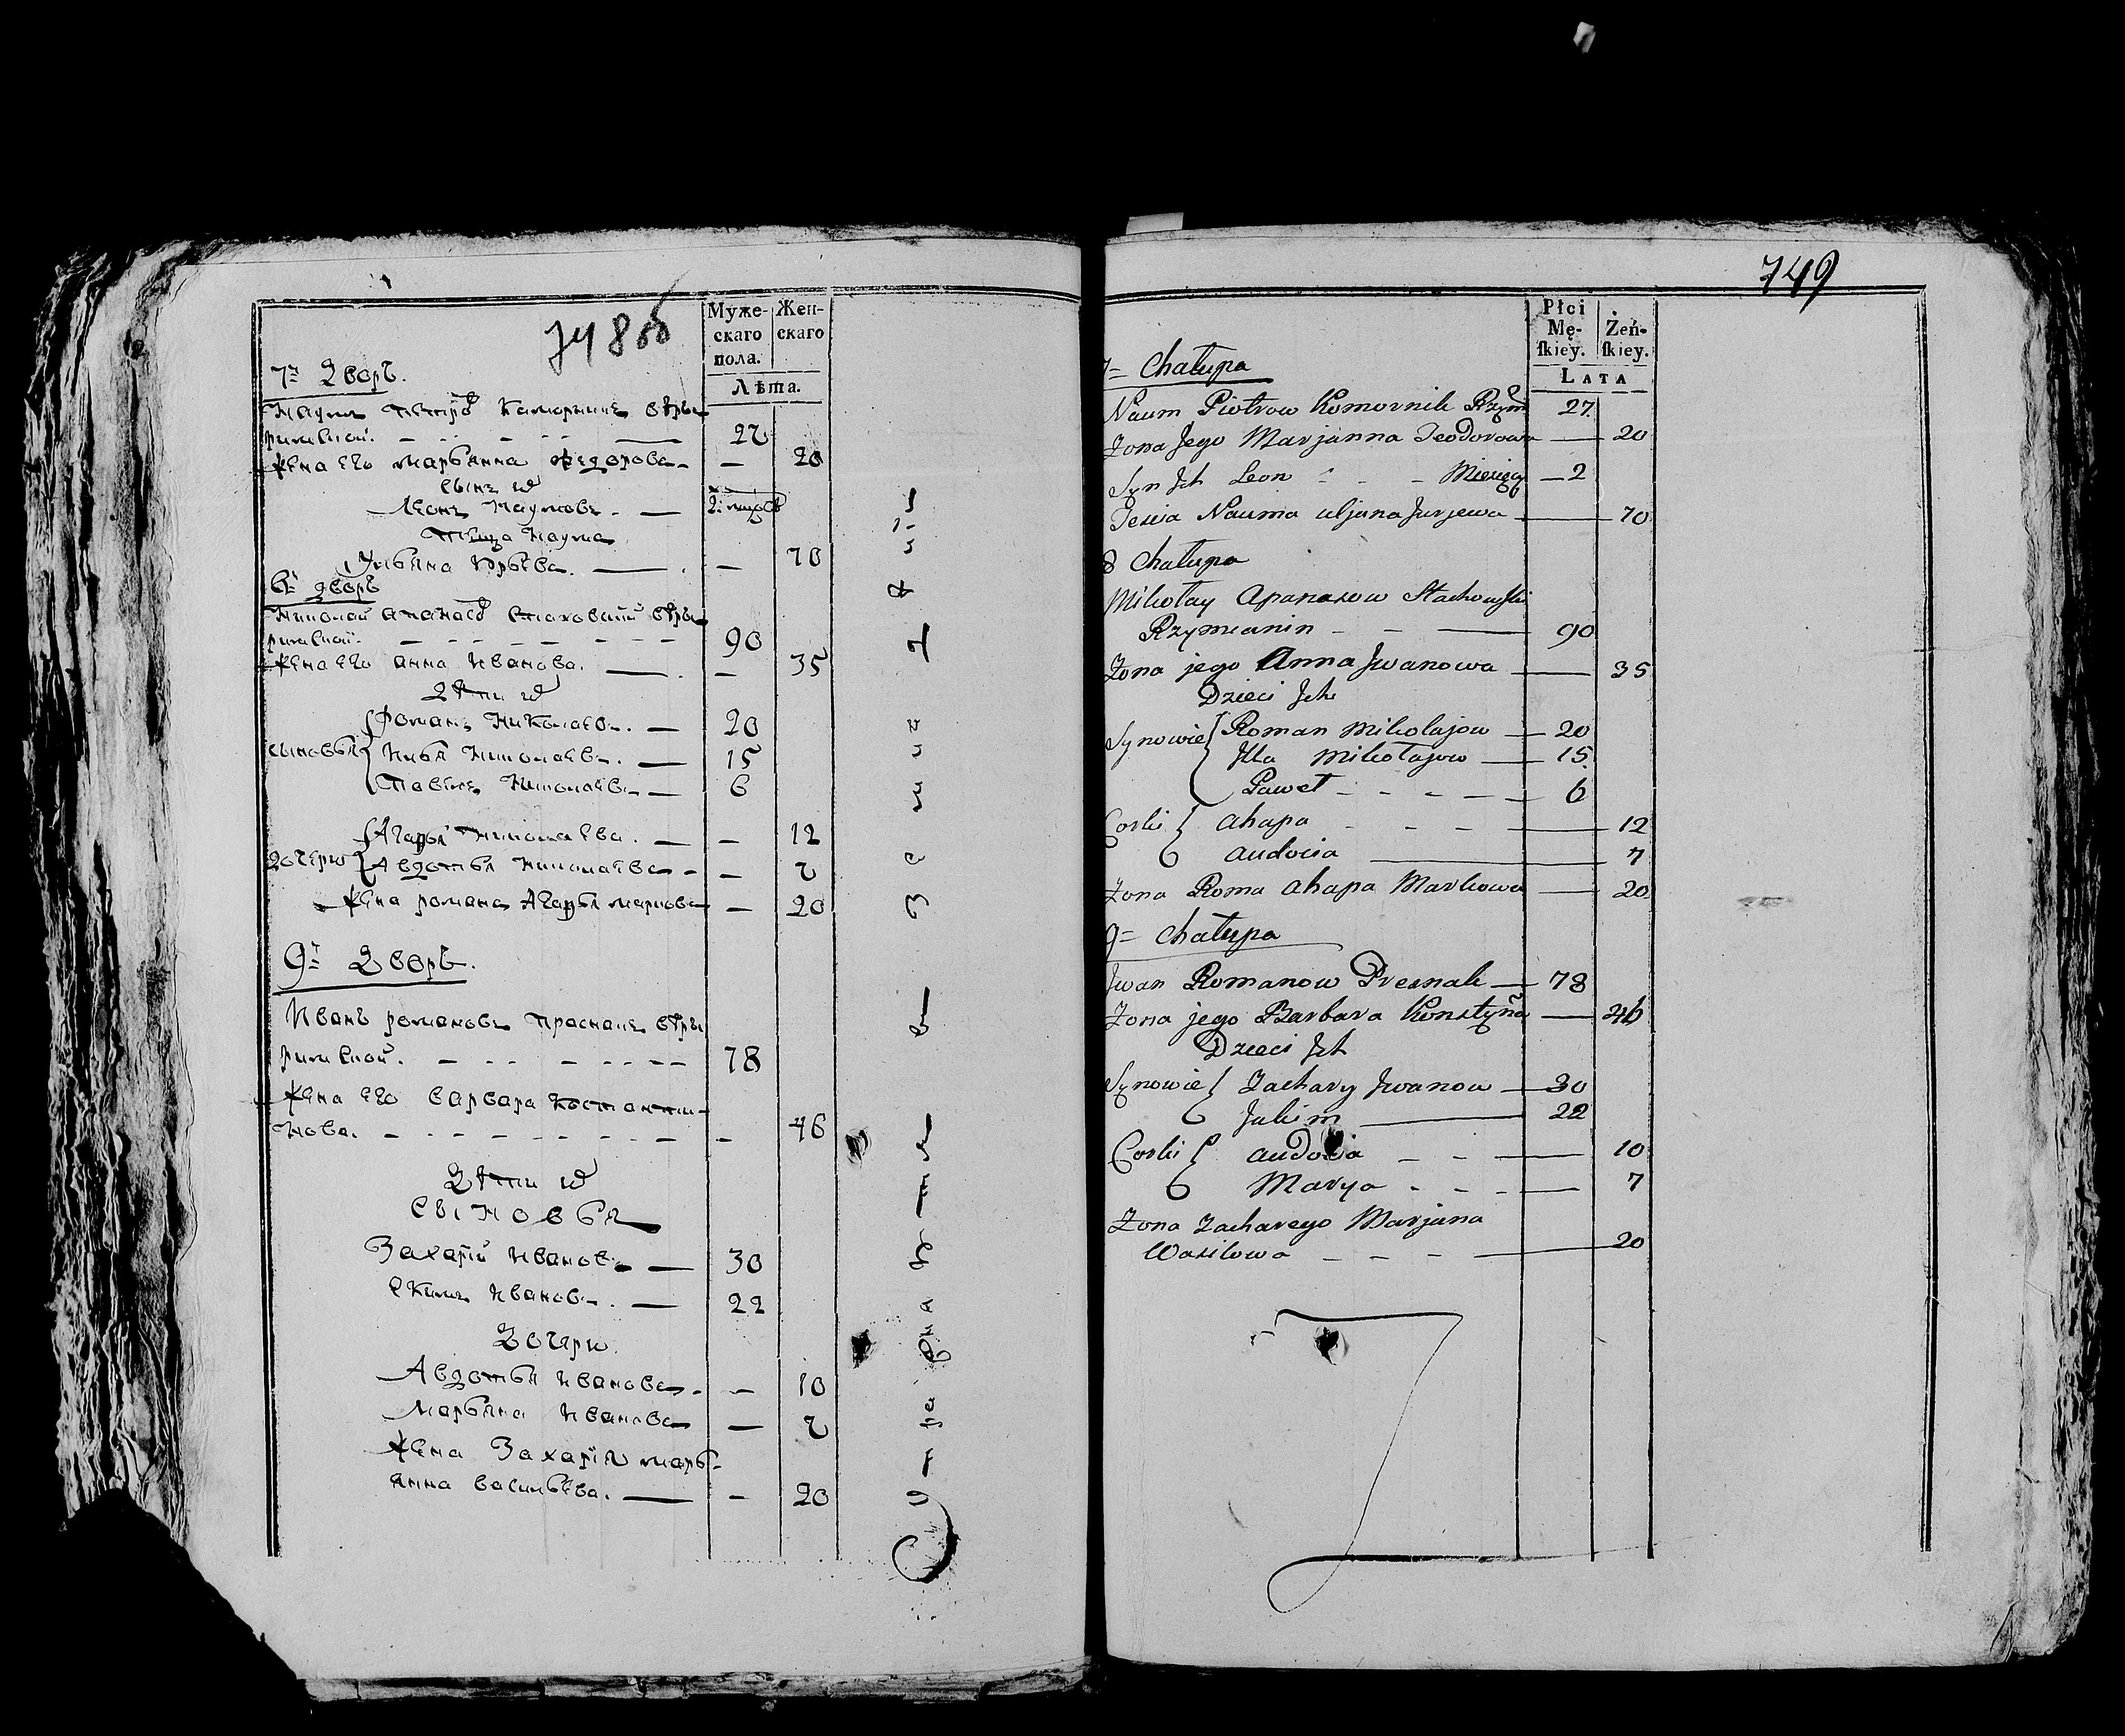 748об
Муже-
скаго
пола.
Жен-
скаго
Лѣта.
7й Дворъ.
Наумъ Петровъ Каморникъ вѣры
римской. 27
Жена его Марьянна Федорова - 20
Сынъ их
Леонъ Наумовъ. 2: мѣс
Тіоща Наума
Ульяна Юрьева. - 70
8й дворъ
Николай Апанасов Стаховский вѣры
римской. 90
Жена его Анна Иванова. - 35
Дѣти их
Романъ Николаевъ. 20
Сыновья Илья Николаевъ. 15
Павелъ Николаевъ 6
Агафья Николаева. - 12
Дочери Авдотья Николаева - 7
Жена Романа Агафья Маркова - 20
9й Дворъ.
Иванъ Романовъ Праснакъ вѣры
римской. 78
Жена его Варвара Костанти-
нова. - 46
Дѣти их
Сыновья
Захарій Ивановъ 30
Екимъ Ивановъ. 22
Дочери
Авдотья Иванова. - 10
Марьяна Иванова - 7
Жена Захарія Марь-
янна Васильева. - 20
749
Płci
Mę-
skiey.
Żeń-
skiey.
LATA
7= Chałupa
Naum Piotrow Komornik Rzym 27
Zona Jego Marjanna Teodorowa 20
Syn Ich Leon - - - Miesięcy 2
Teścia Nauma Uljana Jurjewa 70
8 Chałupa
Mikołay Apanasow Stachowski
Rzymianin 90
Zona jego Anna Jwanowa 35
Dzieci Ich
Synowie Roman Mikołajow 20
Illa Mikołajow 15
Paweł 6
Corki Ahapa 12
Audocia 7
Zona Roma Ahapa Markowa 20
9= Chałupa
Jwan Romanow Presnak 78
Zona jego Barbara Konstyña 46
Dzieci Ich
Synowie Zachary Jwanow 30
Jakim 22
Corki Audocia 10
Marya 7
Zona Zacharego Marjana
Wasilowa 20